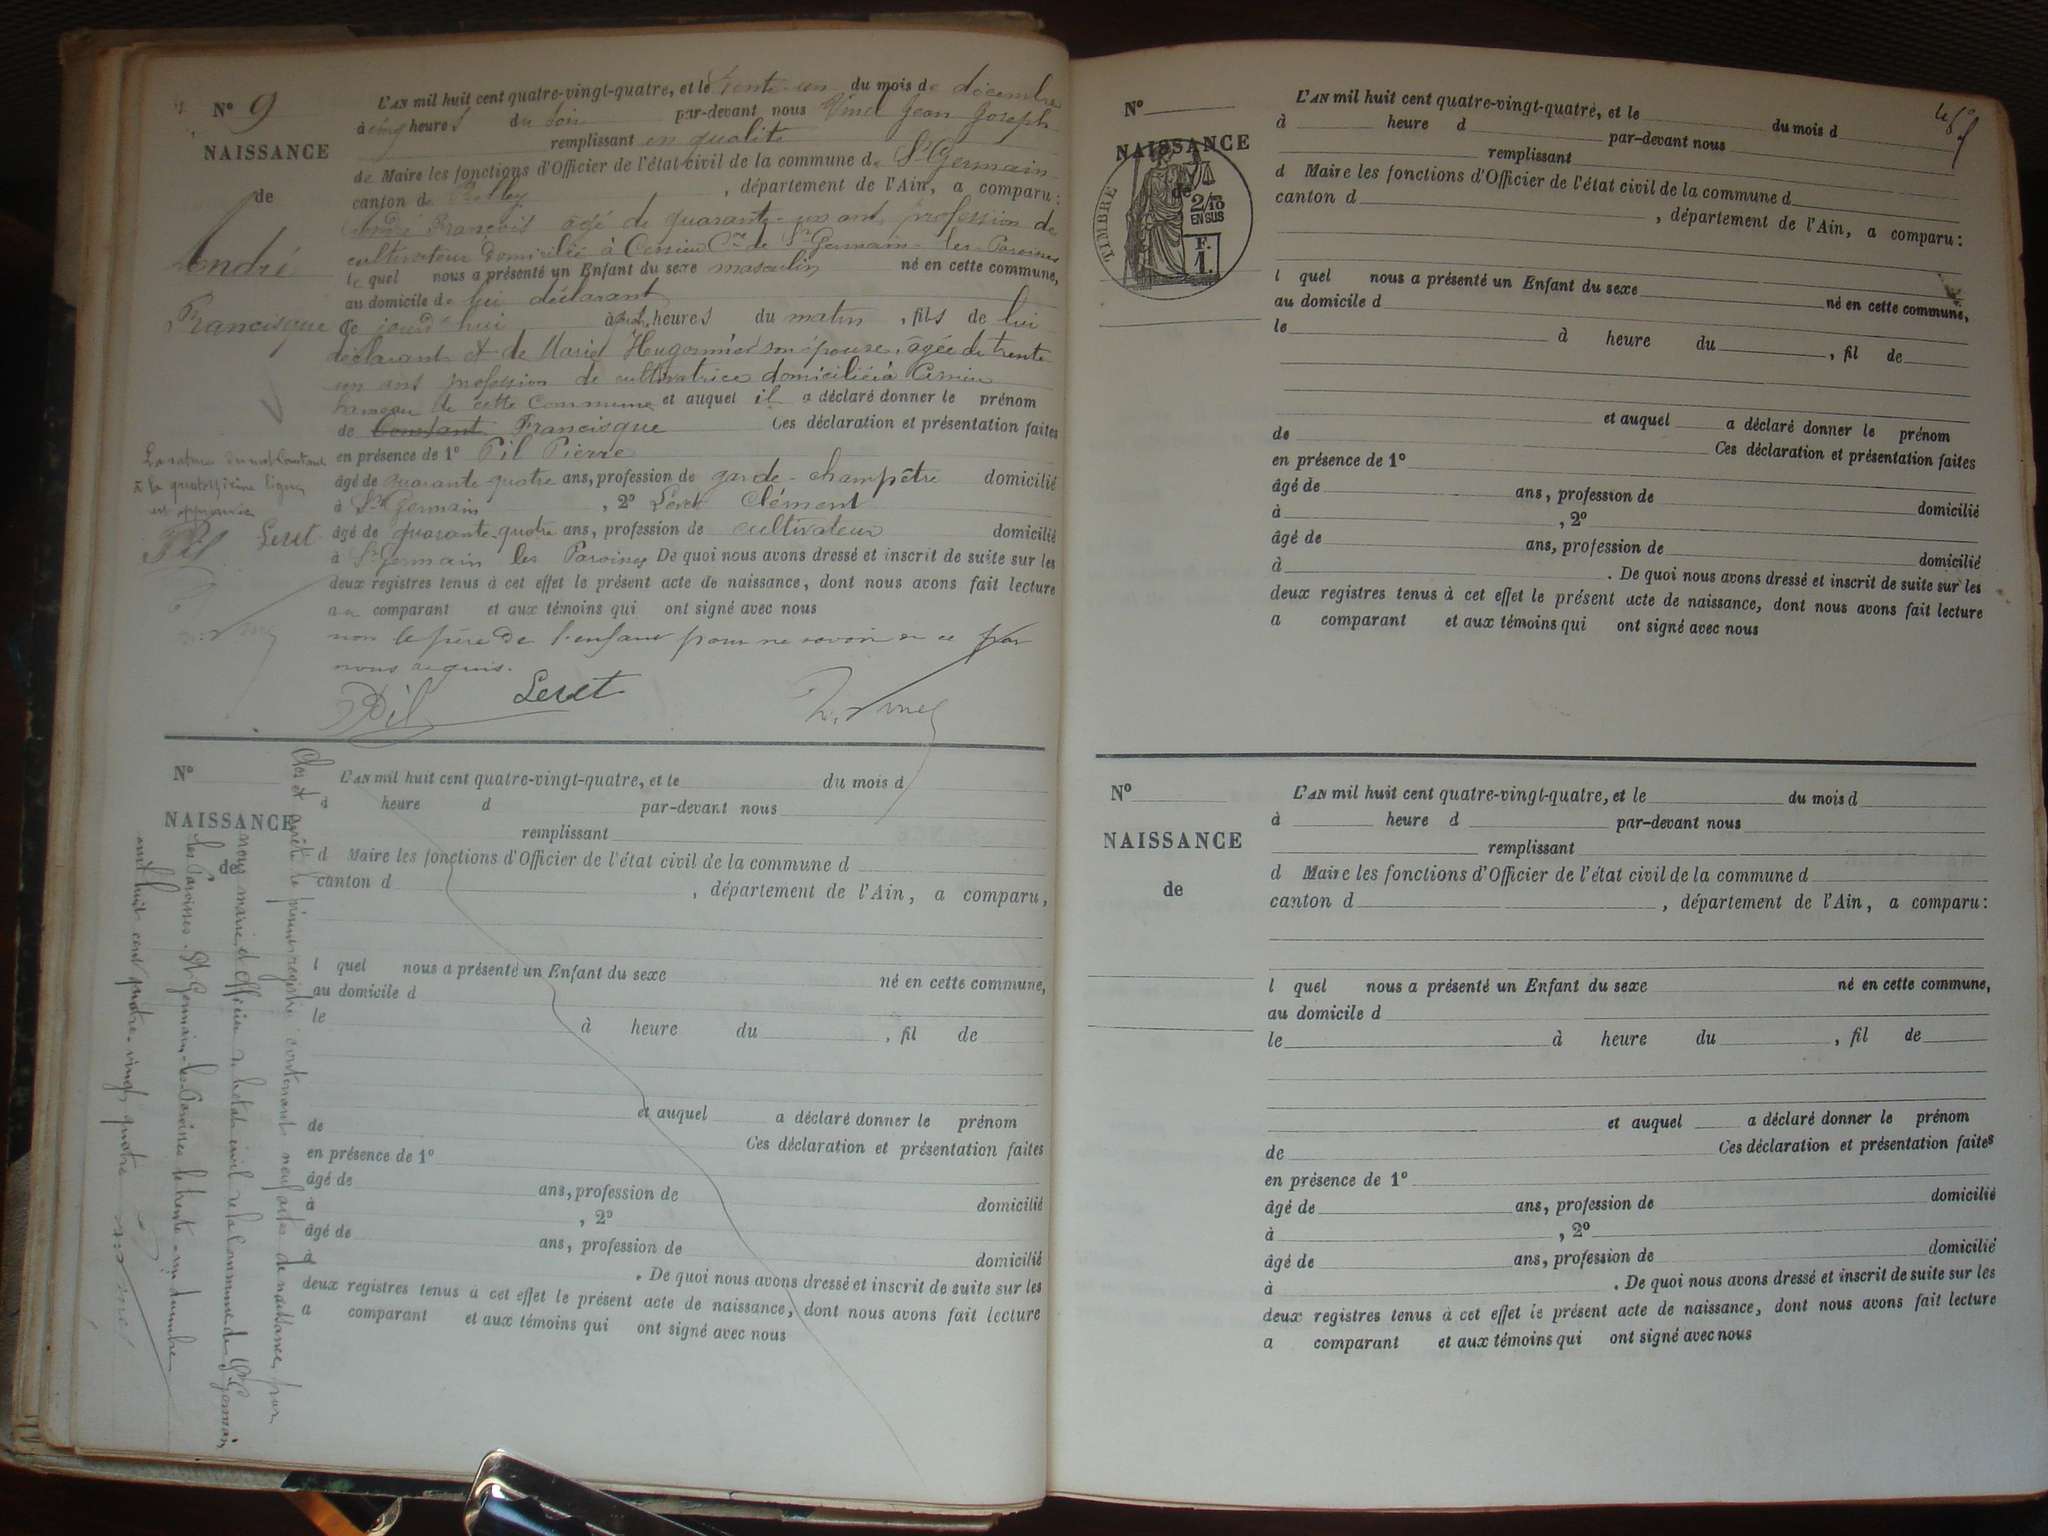 N° 9
NAISSANCE
de
André
Francisque
L'AN mil huit cent quatre-vingt-quatre, et le trente-un du mois de décembre
à cinq heures du soir par-devant nous Jean Joseph
remplissant en qualité
de Maire les fonctions d'Officier de l'état civil de la commune de St Germain
canton de Belley, département de l'Ain, a comparu:
André François agé de quarante-un ans, profession de
cultivateur domicilié à Cessieu Cne de St Germain-les-Paroisses
le quel nous a présenté un Enfant du sexe masculin né en cette commune,
au domicile de lui déclarant
Ce jourd'hui à heures du matin, fils de lui
déclarant et de Marie Hugonnier son épouse, âgée de trente
un ans profession de cultivatrice domiciliée à
hameau de cette Commune et auquel il a déclaré donner le prénom
de Constant Francisque Ces déclaration et présentation faites
en présence de 1° Pil Pierre
âgé de quarante-quatre ans, profession de garde-champêtre domicilié
à St Germain, 2° Leret Clément
âgé de quarante-quatre ans, profession de cultivateur domicilié
à St Germain les Paroisses De quoi nous avons dressé et inscrit de suite sur les
deux registres tenus à cet effet le présent acte de naissance, dont nous avons fait lecture
au comparant et aux témoins qui ont signé avec nous
non le père de l'enfant pour ne savoir de ce par
nous requis.
Pil Leret
La rature du mot Constant
à la quatorzième ligne
est approuvée
Pil Leret
N°
NAISSANCE
de
L'AN mil huit cent quatre-vingt-quatre, et le du mois d
à heure d par-devant nous
remplissant
d Maire les fonctions d'Officier de l'état civil de la commune d
canton d , département de l'Ain, a comparu,
l quel nous a présenté un Enfant du sexe né en cette commune,
au domicile d
le à heure du , fil de
et auquel a déclaré donner le prénom
de Ces déclaration et présentation faites
en présence de 1°
âgé de ans, profession de domicilié
à , 2°
âgé de ans, profession de domicilié
à . De quoi nous avons dressé et inscrit de suite sur les
deux registres tenus à cet effet le présent acte de naissance, dont nous avons fait lecture
a comparant et aux témoins qui ont signé avec nous
Clos et arrêté le présent registre contenant neuf actes de naissance par
nous maire et officier de l'état civil de la Commune de St Germain
les Paroisses. St Germain-les-Paroisses le trente-un décembre
mil huit cent quatre-vingt quatre
N°
NAISSANCE
de
TIMBRE
2/10
EN SUS
F.
1.
L'AN mil huit cent quatre-vingt-quatre, et le du mois d
à heure d par-devant nous
remplissant
d Maire les fonctions d'Officier de l'état civil de la commune d
canton d , département de l'Ain, a comparu:
l quel nous a présenté un Enfant du sexe né en cette commune,
au domicile d
le à heure du , fil de
et auquel a déclaré donner le prénom
de Ces déclaration et présentation faites
en présence de 1°
âgé de ans, profession de domicilié
à , 2°
âgé de ans, profession de domicilié
à . De quoi nous avons dressé et inscrit de suite sur les
deux registres tenus à cet effet le présent acte de naissance, dont nous avons fait lecture
a comparant et aux témoins qui ont signé avec nous
N°
NAISSANCE
de
L'AN mil huit cent quatre-vingt-quatre, et le du mois d
à heure d par-devant nous
remplissant
d Maire les fonctions d'Officier de l'état civil de la commune d
canton d , département de l'Ain, a comparu:
l quel nous a présenté un Enfant du sexe né en cette commune,
au domicile d
le à heure du , fil de
et auquel a déclaré donner le prénom
de Ces déclaration et présentation faites
en présence de 1°
âgé de ans, profession de domicilié
à , 2°
âgé de ans, profession de domicilié
à . De quoi nous avons dressé et inscrit de suite sur les
deux registres tenus à cet effet le présent acte de naissance, dont nous avons fait lecture
a comparant et aux témoins qui ont signé avec nous